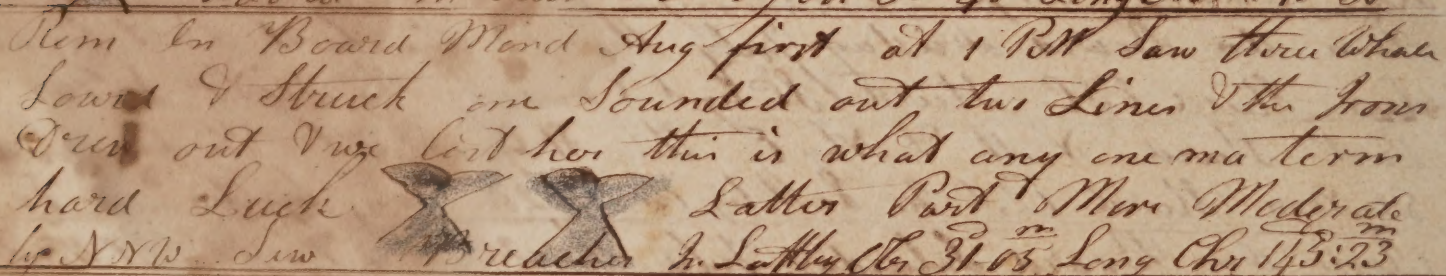 Rem On Board Mond Aug first at 1 PM Saw three Whale
Lowrd & Struck one Sounded out two Lines & the Irons
Drew out & we Lost her this is what any one ma term
hard Luck Latter Part More Moderate
by NNW Saw Breaches In Latt by Obs 31-03 Long Chr 143:23